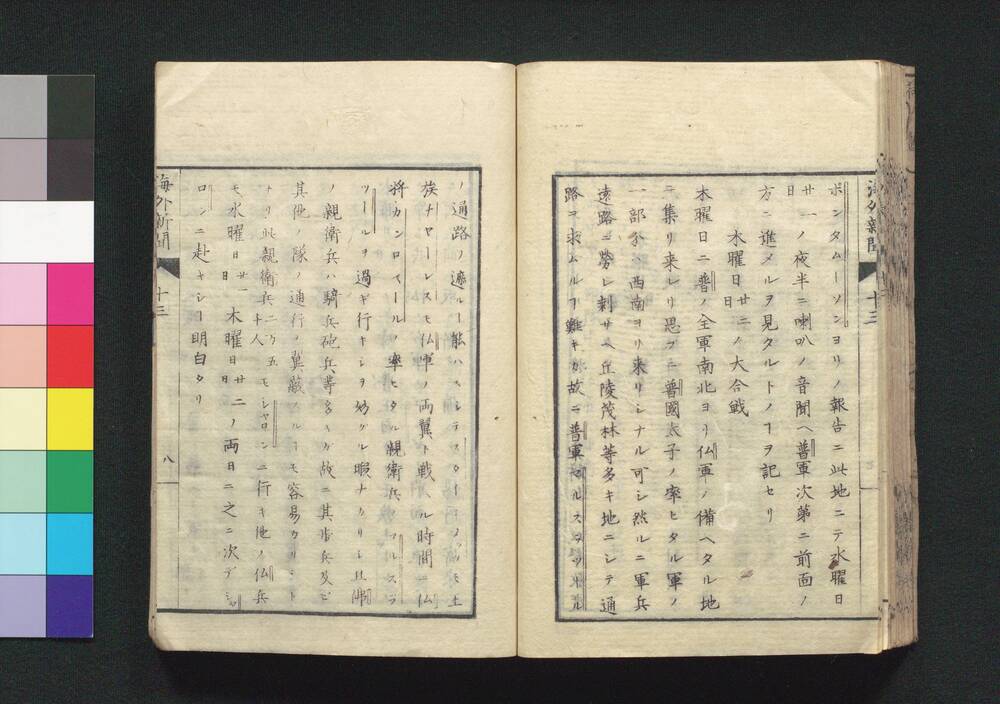 海外新聞 十三
ポンタムーソンヨリノ報告ニ此地ニテ水曜日
廿一日ノ夜半ニ喇叭ノ音聞ヘ普軍次第ニ前面ノ
方ニ進メルヲ見タルトノヿヲ記セリ
木曜日廿二日ノ大合戦
木曜日ニ普ノ全軍南北ヨリ仏軍ノ備ヘタル地
ニ集リ来レリ思フニ普國太子ノ率ヒタル軍ノ
一部分ハ西南ヨリ来リシナル可シ然ルニ軍兵
遠路ニ勞レ剌サヘ丘陵茂林等多キ地ニシテ通
路ヲ求ムルヿ難キカ故ニ普軍
ノ通路ノ遮ルヿ能ハ
族ナヤーレスモ仏軍ノ両翼ト戦 ル時間ニ仏
将カンロベールノ率ヒタル親衛兵 マルスラ
ツールヲ過ギ行キシヲ妨グル暇ナカリシ且
ノ親衛兵ハ騎兵砲兵等多キカ故ニ其歩兵及ビ
其他ノ隊ノ通行ノ翼蔽 ルヿモ容易カリシト
ナリ此親衛兵二万五千人モシヤロンニ行キ他ノ仏兵
モ水曜日廿一日木曜日廿二日ノ両日ニ之ニ次デシャ
ロンニ赴キシヿ明白タリ
海外新聞 十三 八